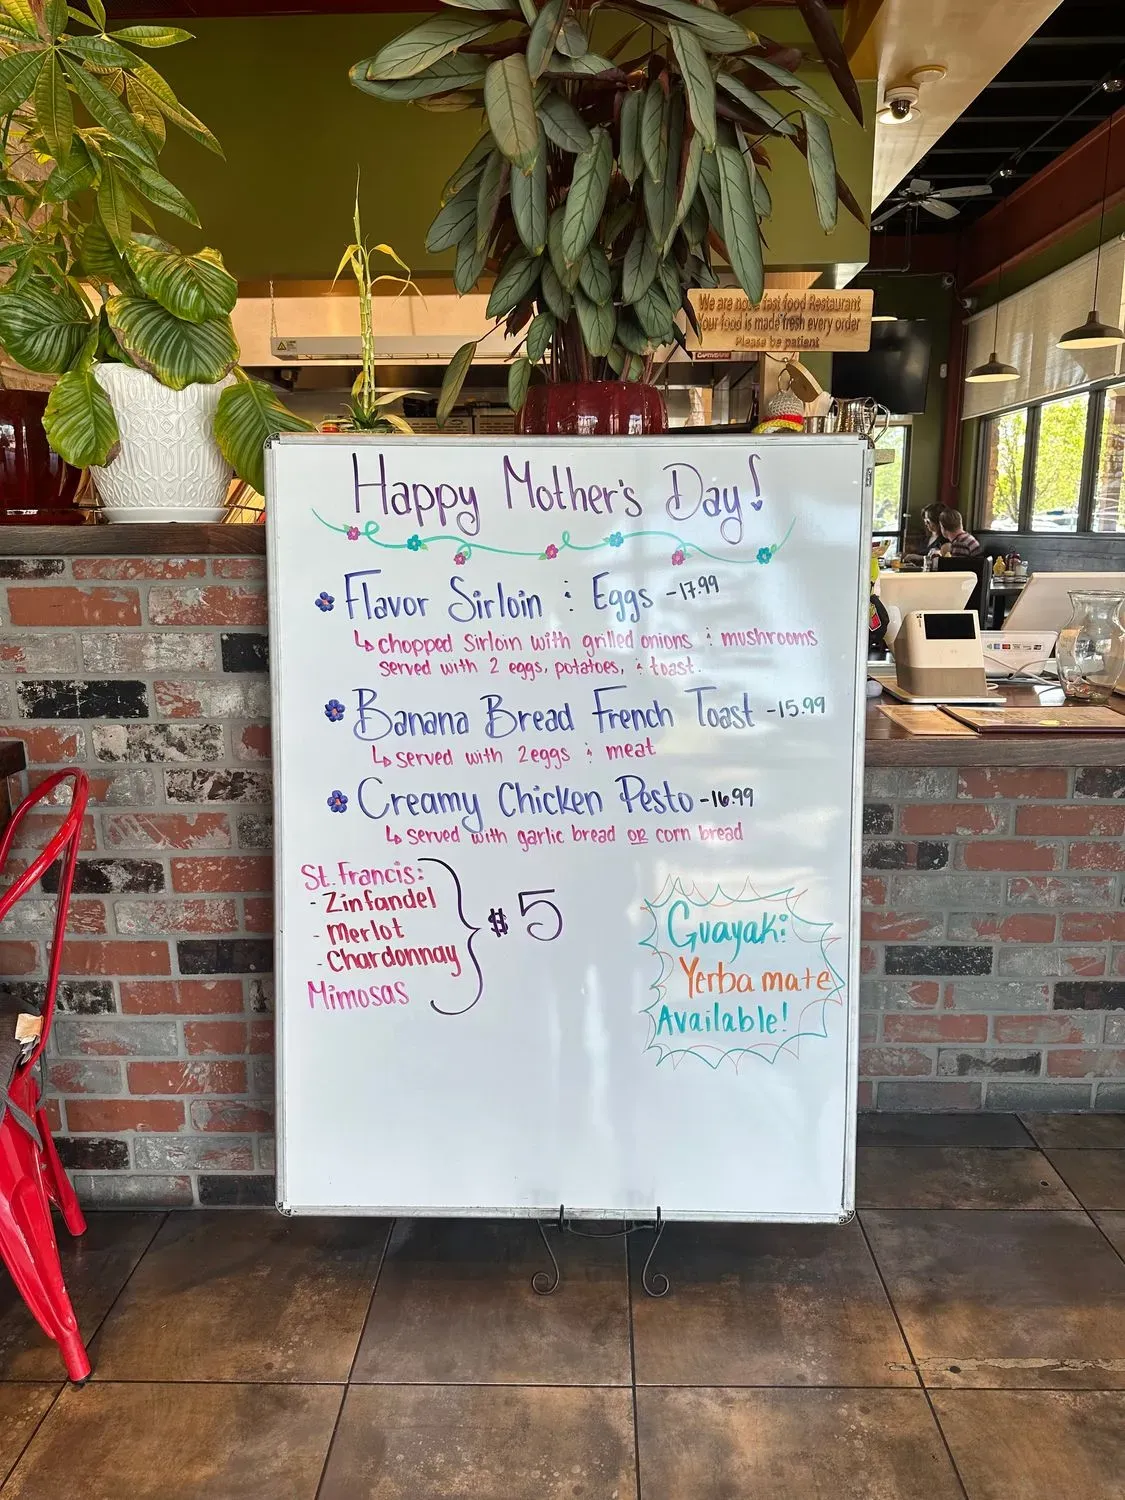 We are not a fast food Restaurant
Your food is made fresh every order
Please be patient
Happy Mother's Day!
Flavor Sirloin & Eggs -17.99
↳ chopped sirloin with grilled onions & mushrooms
served with 2 eggs, potatoes, & toast.
Banana Bread French Toast -15.99
↳ served with 2 eggs & meat
Creamy Chicken Pesto -16.99
↳ served with garlic bread OR corn bread
St. Francis:
- Zinfandel
- Merlot
- Chardonnay
Mimosas
$5
Guayaki:
Yerba mate
Available!